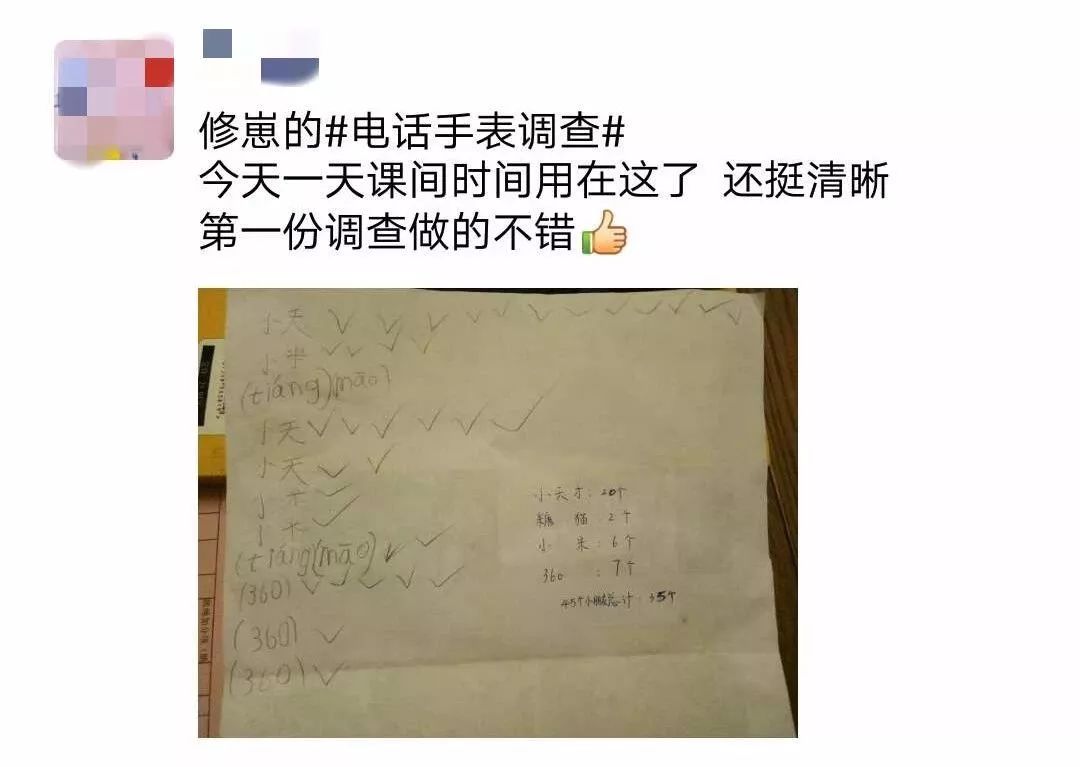 修崽的#电话手表调查#
今天一天课间时间用在这了 还挺清晰
第一份调查做的不错
小天 ✓ ✓ ✓ ✓ ✓ ✓ ✓ ✓ ✓ ✓ ✓
小米 ✓ ✓ ✓ ✓
(tiáng)(māo)
小天 ✓ ✓ ✓ ✓ ✓ ✓
小天 ✓ ✓
小米 ✓
小米 ✓
(tiáng)(māo) ✓ ✓
(360) ✓ ✓ ✓ ✓ ✓
(360) ✓
(360) ✓
小天才：20个
糖猫：2个
小米：6个
360：7个
45个小朋友总计：35个